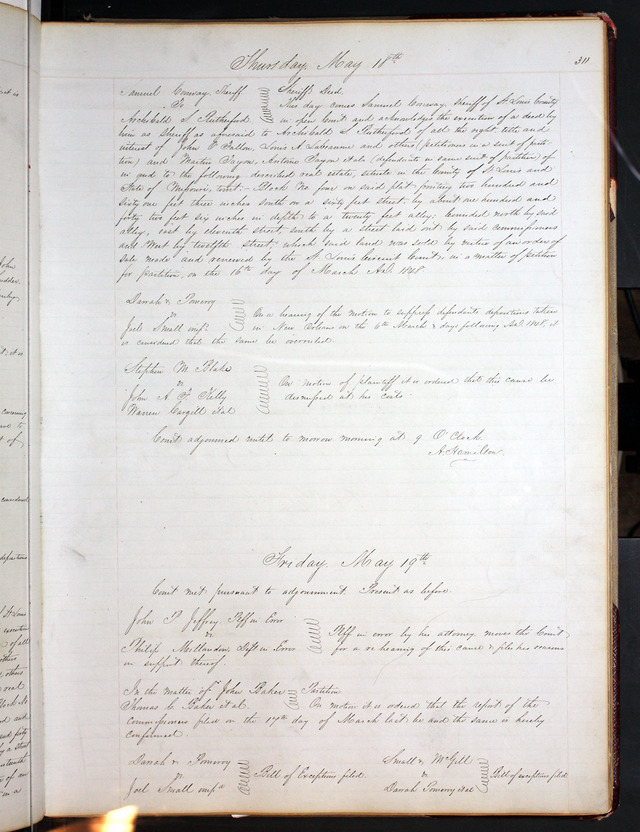 Thursday, May 18th
311
Samuel Conway Sheriff Sheriff's Deed.
To This day comes Samuel Conway Sheriff of St Louis County
Archibald S Rutherford in open Court and acknowledges the execution of a deed by
him as Sheriff as aforesaid to Archibald S Rutherford of all the right, title and
interest of John F Fallon, Louis A Labeaume and others (petitioners in a suit of parti-
tion) and Martin Payon, Antoine Payon et als (defendants in same suit of partition) of
in and to the following described real estate, situate in the County of St Louis and
State of Missouri, towit:- Block No four on said plat fronting two hundred and
sixty one feet three inches south on a sixty feet street, by about one hundred and
forty two feet six inches in depth to a twenty feet alley: bounded north by said
alley, east by eleventh street, south by a street laid out by said commissioners
and West by twelfth Street, which said land was sold by virtue of an order of
sale made and renewed by the St Louis Circuit Court, in a matter of petition
for partition, on the 16th day of March A.D. 1848.
Darrah & Pomeroy
vs On a hearing of the motion to suppress defendants depositions taken
Joel Small impd in New Orleans on the 6th March & days following A.D. 1848, it
is considered that the same be overruled.
Stephen M. Blake
vs On motion of plaintiff it is ordered that this cause be
John A F Kelly dismissed at his costs.
Warren Cargill et al
Court adjourned until to morrow morning at 9 O'Clock.
A Hamilton.
Friday, May 19th
Court met pursuant to adjournment. Present as before.
John P. Jeffrey Plff in Error
vs Plff in error by his attorney moves the Court
Philip McLandon, Deft in Error for a re hearing of this cause & files his reasons
in support thereof.
In the matter of John Baker Partition
Thomas C. Baker et al. On motion it is ordered that the report of the
commissioners filed on the 17th day of March last be and the same is hereby
confirmed.
Darrah & Pomeroy
vs Bill of Exceptions filed.
Joel Small impd
Small & McGill
vs Bill of exceptions filed
Darrah Pomeroy et al